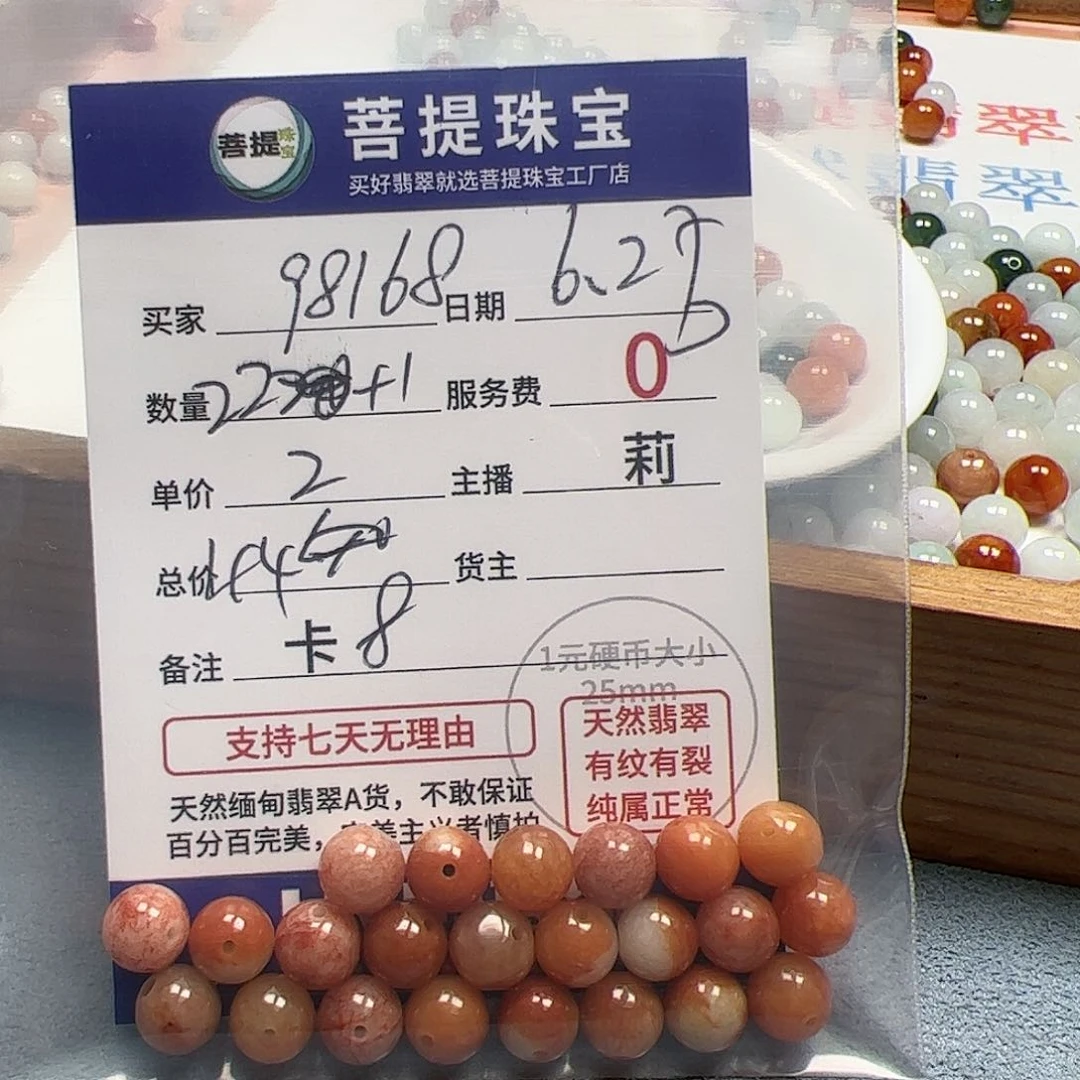 菩提珠宝
菩提珠宝
买好翡翠就选菩提珠宝工厂店
买家 98168 日期 6.27
数量 22 +1 服务费 0
单价 2 主播 莉
总价 44 货主
备注 卡8
1元硬币大小
25mm
支持七天无理由
天然翡翠
有纹有裂
纯属正常
天然缅甸翡翠A货，不敢保证
百分百完美，完美主义者慎拍
翠
翠